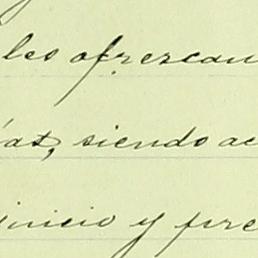 les ofrezcan
ías, siendo ac
juicio y pre